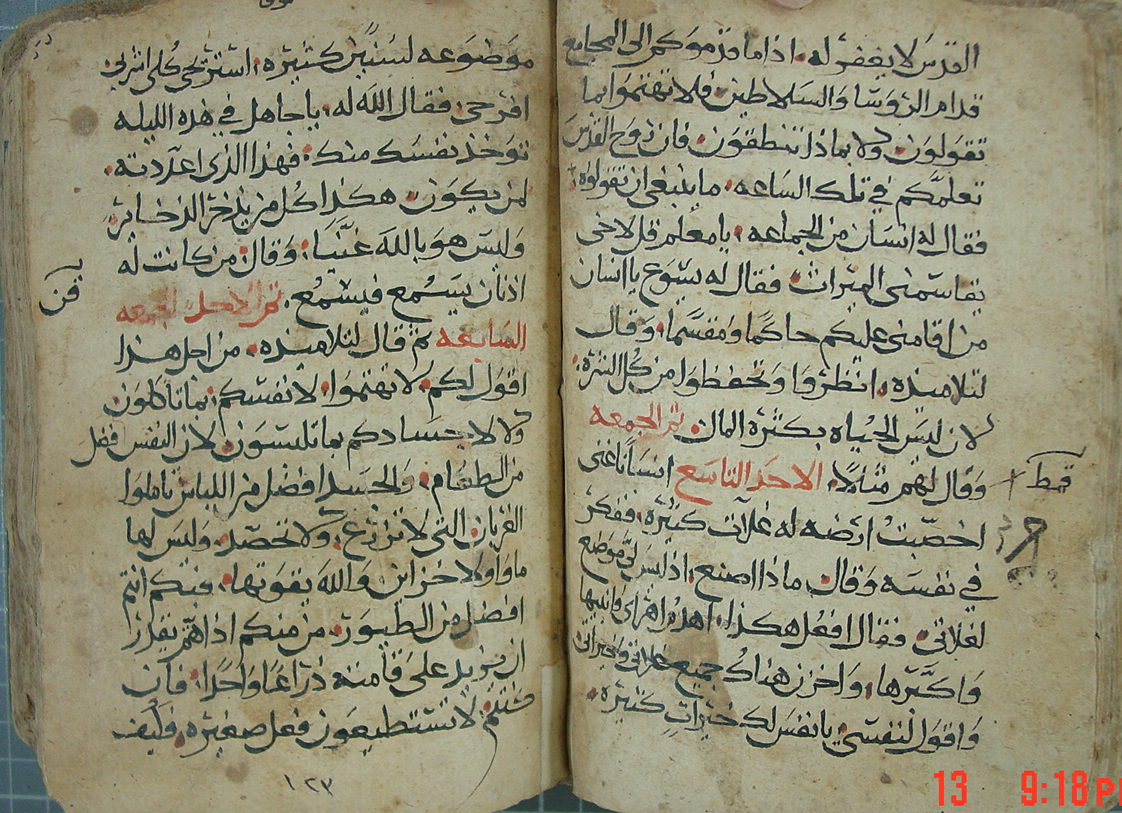 القدس لا يغفر له. اذا ما قدموكم الى المجامع
قدام الرؤسا والسلاطين فلا تهتموا بما
تقولون ولا بماذا تنطقون فان روح القدس
تعلمكم في تلك الساعه. ما ينبغي ان تقولوه.
فقال له انسان من الجماعه. يا معلم قل لاخي
يقاسمني الميراث فقال له يسوع يا انسان
من اقامني عليكم حاكما ومقسما. وقال
لتلاميذه. انظروا وتحفظوا من كل الشره.
لان ليس الحياه بكثرة المال. تم الجمعه
وقال لهم مثلا. الاحد التاسع انسانا غني
قمط
اخصبت ارضه له غلات كثيره. ففكر
في نفسه وقال ماذا اصنع. اذ ليس لي موضع
لغلاتي. فقال افعل هكذا. اهدم اهراي وابنيها
واكبرها. واخزن هناك جميع غلاتي وخيراتي
واقول لنفسي يا نفس لك خيرات كثيره.
موضوعه لسنين كثيره. استريحي كلي اشربي
افرحي فقال الله له. يا جاهل في هذه الليله
توخذ نفسك منك. فهذا الذي اعددته.
لمن يكون هكذا كل من يذخر الذخاير.
وليس هو بالله غنيا. وقال من كانت له
اذنان يسمع فيسمع. تم الاحد الجمعه
قن
السابعه ثم قال لتلاميذه. من اجل هذا
اقول لكم. لا تهتموا. لانفسكم. بما تاكلون
ولا لاجسادكم بما تلبسون. لان النفس افضل
من الطعام. والجسد افضل من اللباس تاملوا
الغربان التي لا تزرع. ولا تحصد. وليس لها
ماوا ولا خزاين والله يقوتها. فبكم انتم
افضل من الطيور. من منكم اذا هم يقدر
ان يزيد على قامته ذراعا واحدا. فان
كنتم لا تستطيعون فعل صغيره. فكيف
١٢٣
13 9:18 P